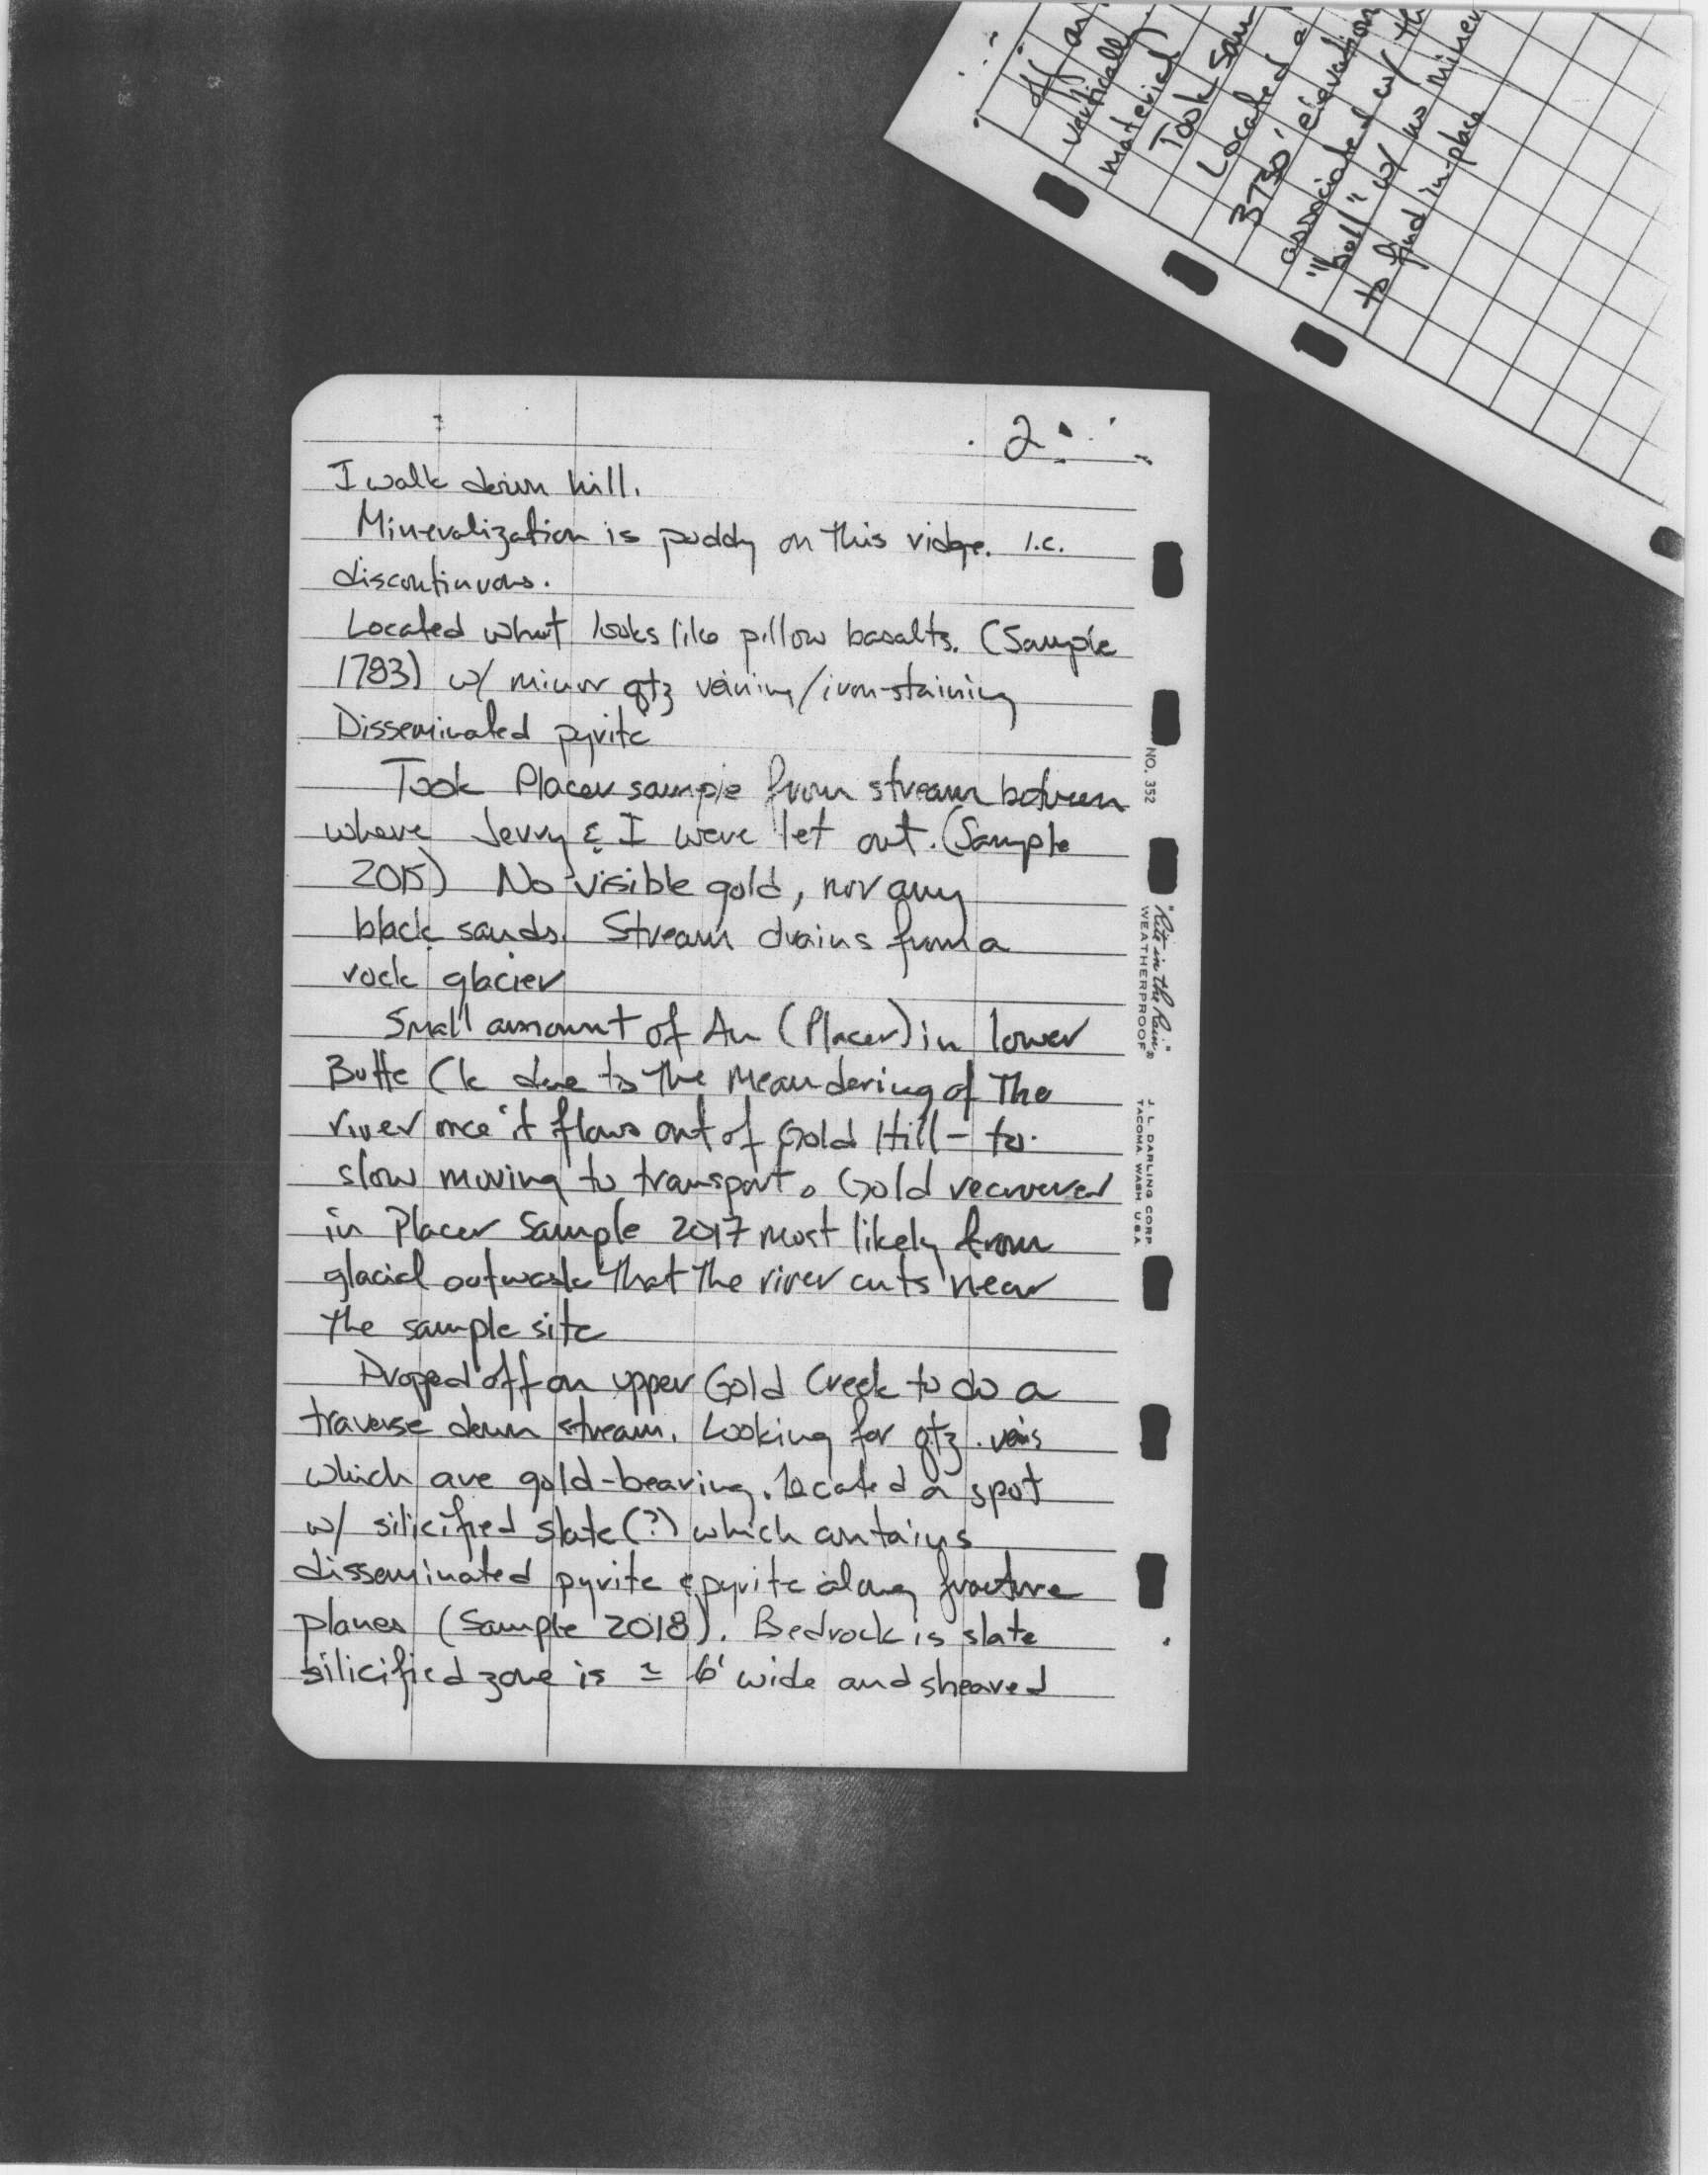 2
I walk down hill.
Mineralization is poddy on this ridge. i.e.
discontinuous.
Located what looks like pillow basalts. (Sample
1783) w/ minor qtz veining/iron-staining
Disseminated pyrite
Took Placer sample from stream between
where Jerry & I were let out. (Sample
2015) No visible gold, nor any
black sands. Stream drains from a
rock glacier
Small amount of Au (Placer) in lower
Butte Ck due to the meandering of The
river once it flows out of Gold Hill - to
slow moving to transport. Gold recovered
in Placer Sample 2017 most likely from
glacial outwash that the river cuts near
the sample site
Droped off on upper Gold Creek to do a
traverse down stream. Looking for qtz. veins
which are gold-bearing. Located a spot
w/ silicified slate (?) which contains
disseminated pyrite & pyrite along fracture
planes (Sample 2018). Bedrock is slate
silicified zone is ≃ 6' wide and sheared
NO. 352
"Rite in the Rain"®
WEATHERPROOF
J. L. DARLING CORP.
TACOMA, WASH. U.S.A.
off an
vertically
material)
Took Sam
Located a
3750' elevation
associated w/ th
"ball" w/ no miner
to find in-place